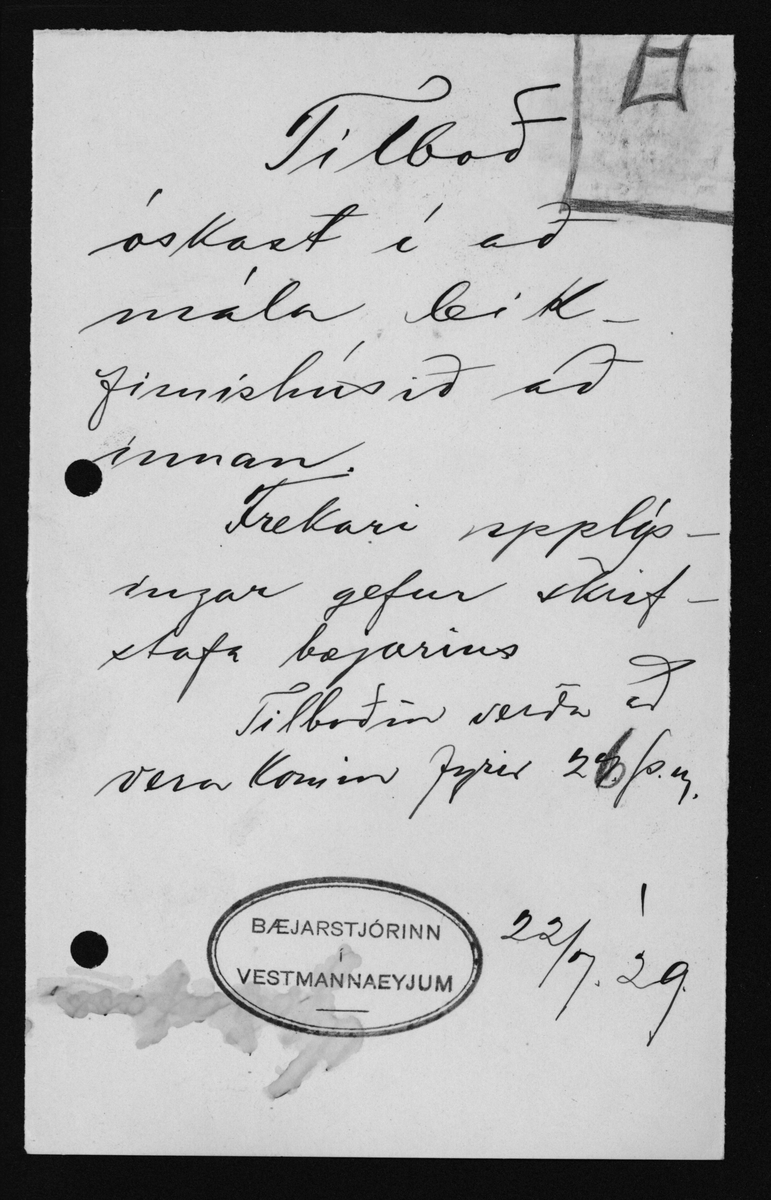 Tilboð
óskast í að
mála leik-
fimishúsið að
innan.
Frekari upplýs-
ingar gefur skrif-
stofa bæjarins
Tilboðin verða að
vera komin fyrir 26/s.m.
BÆJARSTJÓRINN
í
VESTMANNAEYJUM
22/7. '29.